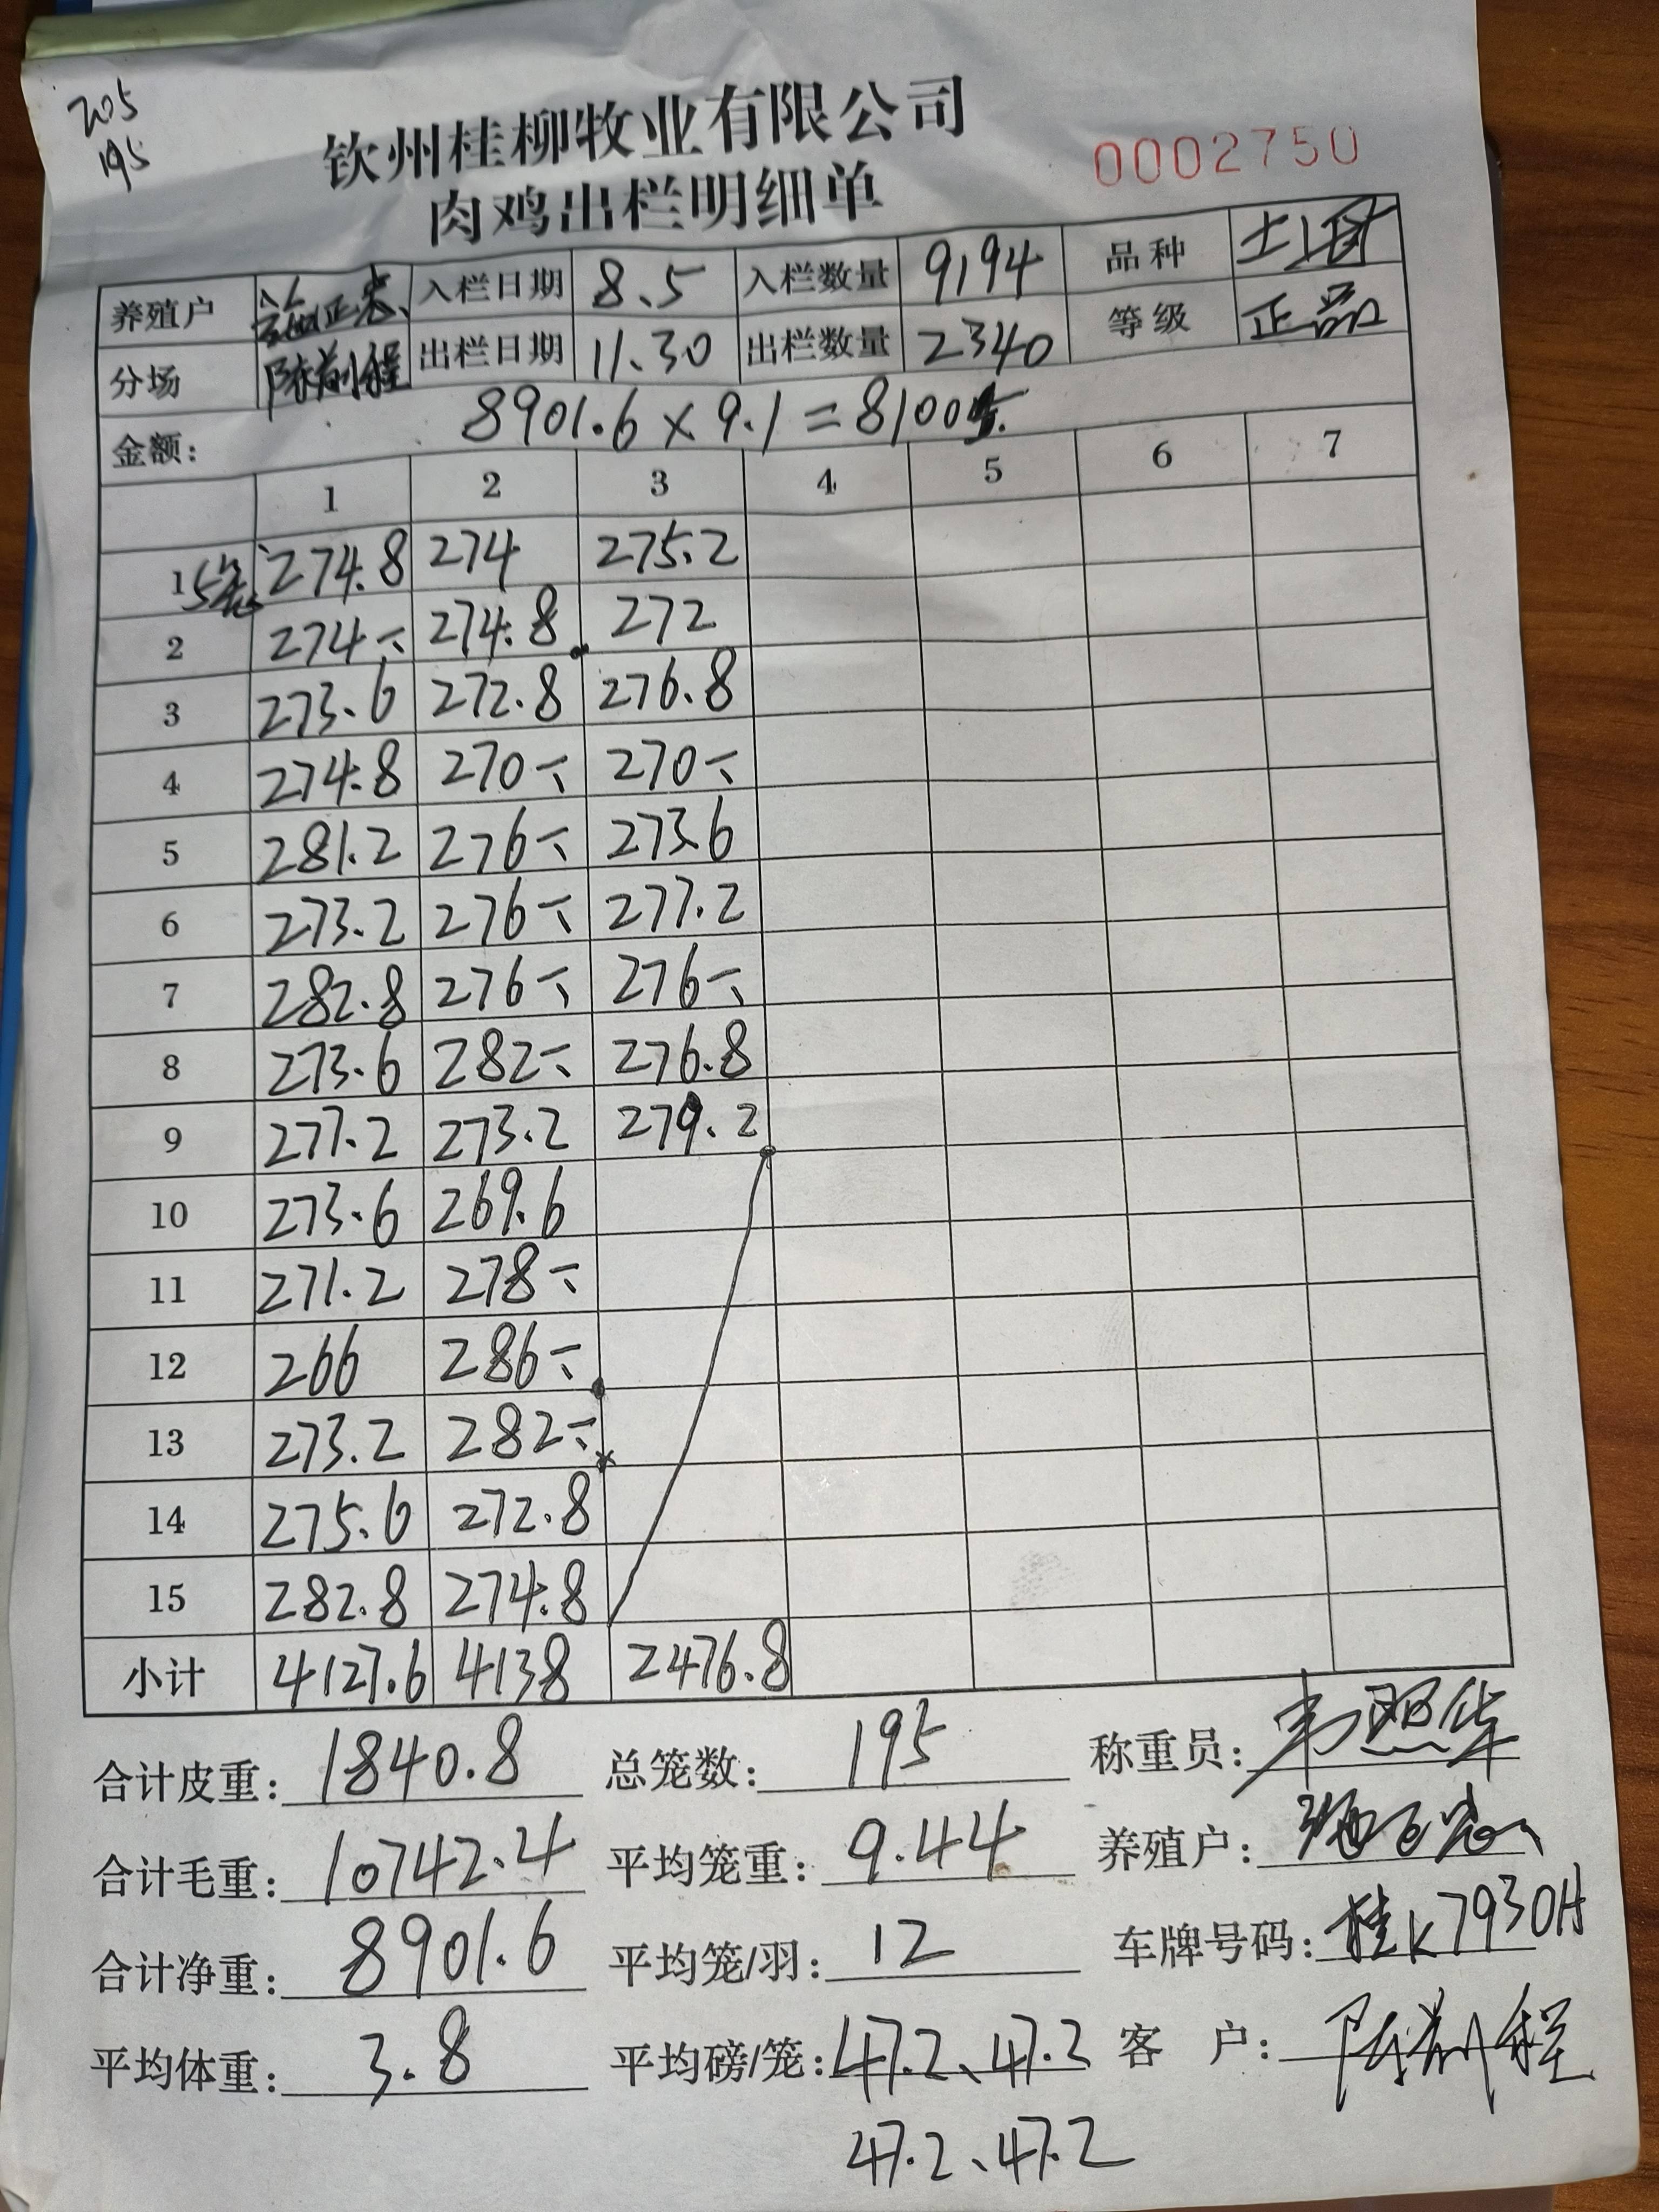 205
195
钦州桂柳牧业有限公司
肉鸡出栏明细单
0002750
养殖户 入栏日期 8.5 入栏数量 9194 品种 土
分场 陈 程 出栏日期 11.30 出栏数量 2340 等级 正品
金额: 8901.6×9.1=81005.
1 2 3 4 5 6 7
1 5笼 274.8 274 275.2
2 274 274.8 272
3 273.6 272.8 276.8
4 274.8 270 270
5 281.2 276 273.6
6 273.2 276 277.2
7 282.8 276 276
8 273.6 282 276.8
9 277.2 273.2 279.2
10 273.6 269.6
11 271.2 278
12 266 286
13 273.2 282
14 275.6 272.8
15 282.8 274.8
小计 4127.6 4138 2476.8
合计皮重: 1840.8 总笼数: 195 称重员: 韦照华
合计毛重: 10742.4 平均笼重: 9.44 养殖户:
合计净重: 8901.6 平均笼/羽: 12 车牌号码: 桂K7930H
平均体重: 3.8 平均磅/笼: 47.2、47.2 客 户: 陈 程
47.2、47.2